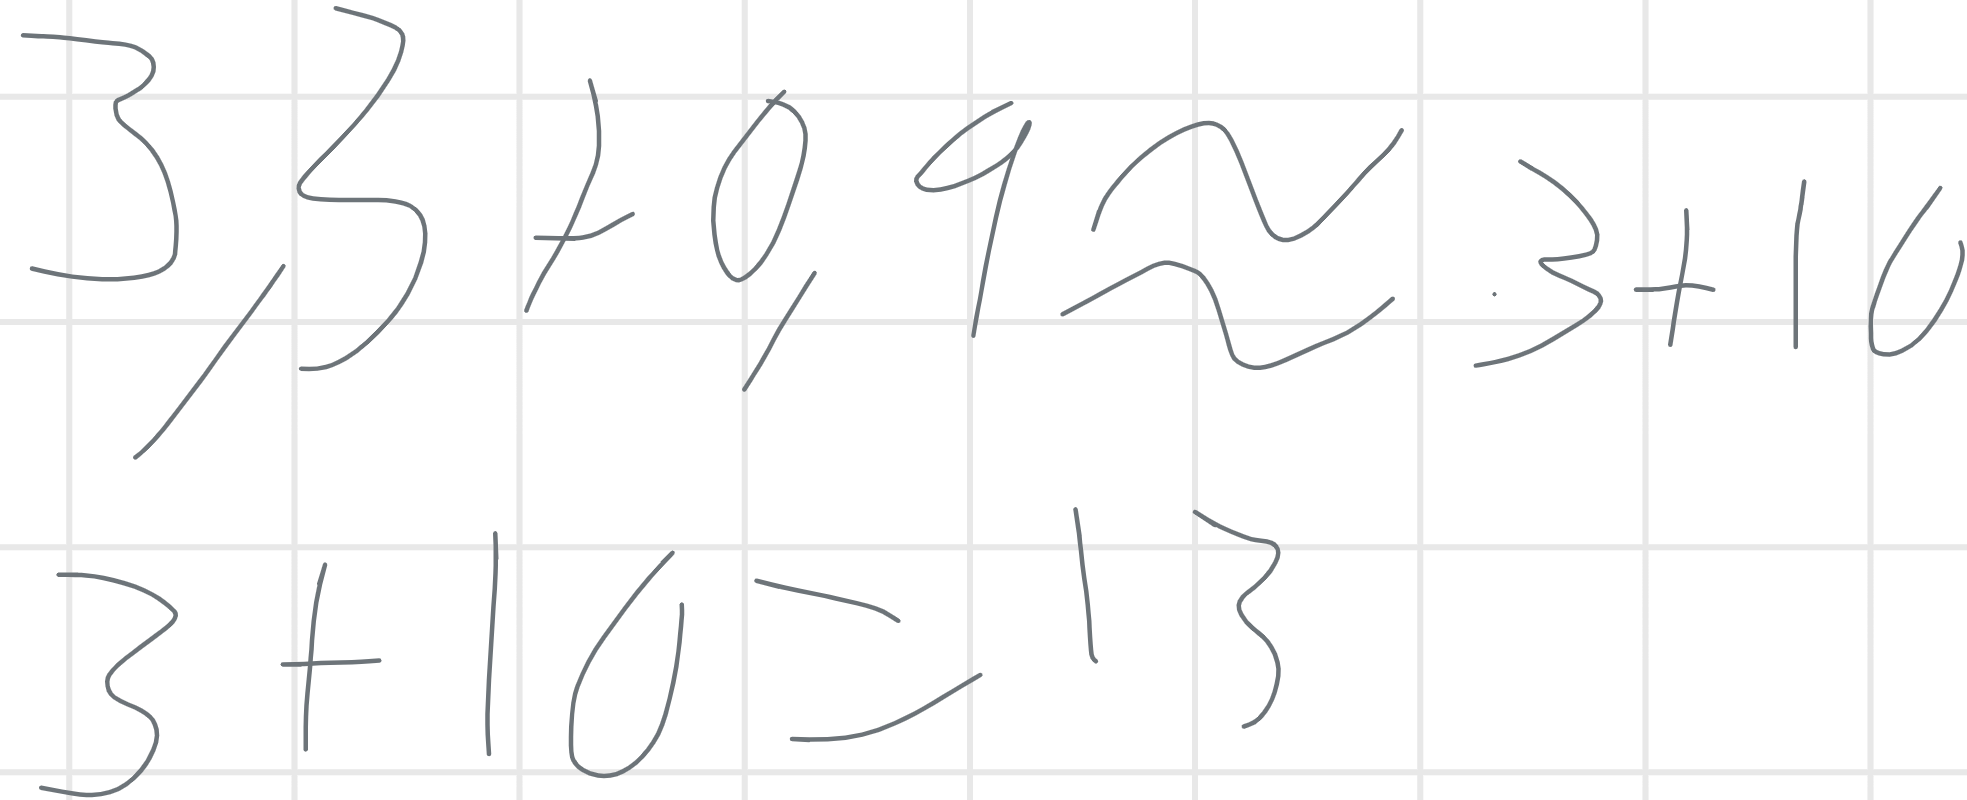 3,3+0,9≈3+10
3+10=13